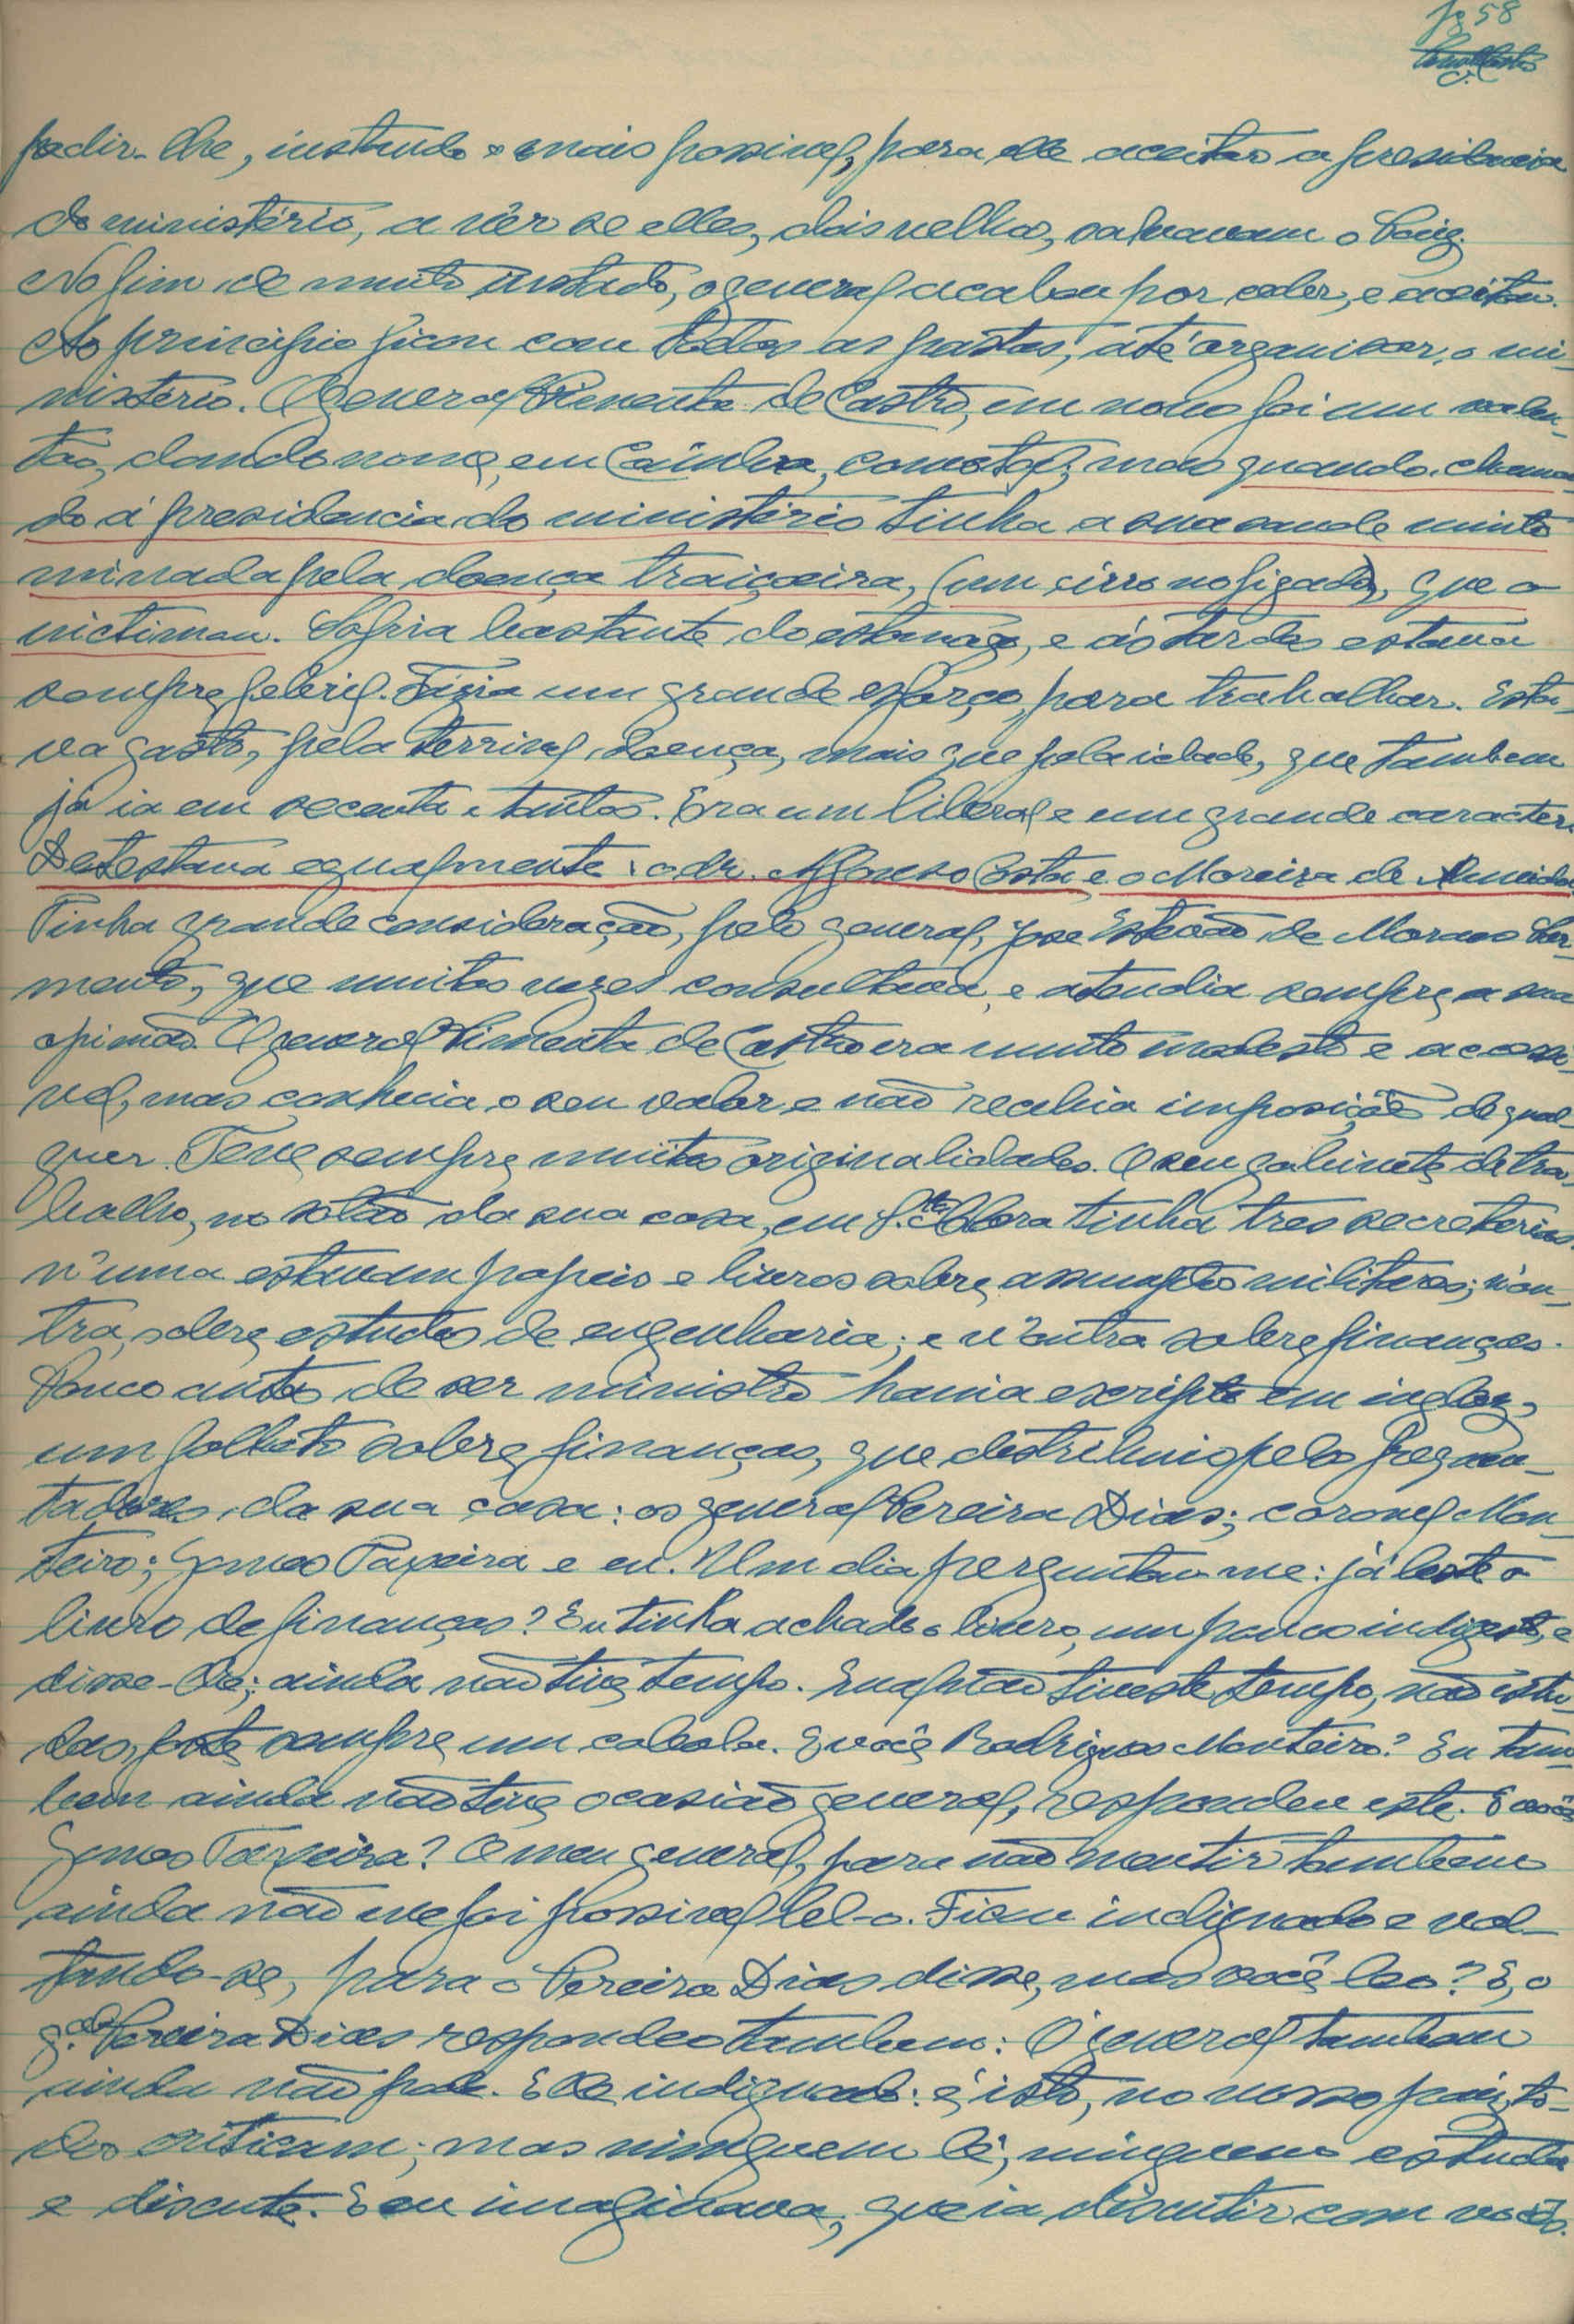 fg 58
pedir-lhe, instando o mais possivel, para elle aceitar a presidencia
do ministério, a vêr se elles, dois velhos, salvavam o Paiz.
No fim de muito instado, o general acabou por ceder, e aceitou.
Ao principio ficou com todas as pastas, até organisar, o mi-
nisterio. O general Pimenta de Castro, em novo foi um valen-
tão, dando nome, em Coimbra, como tal; mas quando chama-
do á presidencia do ministério tinha a sua saude muito
minada pela doença traiçoeira, (um cirro no figado), que o
victimou. Sofria bastante do estomago, e ás tardes estava
sempre febril. Fazia um grande esforço, para trabalhar. Esta-
va gasto, pela terrivel doença, mais que pela idade, que tambem
já ia em secenta e tantos. Era um liberal e um grande caracter.
Detestava egualmente: o dr. Affonso Costa, e o Moreira de Almeida.
Tinha grande consideração, pelo general, José Estevão de Moraes Sar-
mento, que muitas vezes consultava, e atendia sempre a sua
opinião. O general Pimenta de Castro era muito modesto e acessi-
vel, mas conhecia o seu valor e não recebia imposições de qual-
quer. Teve sempre muitas originalidades. O seu gabinete de tra-
balho, no sotão da sua casa, em S.ta Clara tinha tres secretarias.
n'uma estavam papeis e livros sobre assumptos militares; n'ou-
tra, sobre estudos de engenharia; e n'outra sobre finanças.
Pouco antes de ser ministro havia escripto em inglez,
um folheto sobre finanças, que destribuio pelos frequen-
tadores da sua casa: os general Pereira Dias; coronel Mon-
teiro; Gomes Teixeira e eu. Um dia perguntou-me: já leste o
livro de finanças? Eu tinha achado o livro, um pouco indigesto, e
disse-lhe; ainda não tive tempo. Qual não tiveste tempo, não estu-
das, foste sempre um cabula. E você Rodrigues Monteiro? Eu tam-
bem ainda não tive ocasião general, respondeu este. E você
Gomes Teixeira? O meu general, para não mentir tambem
ainda não me foi possivel lel-o. Ficou indignado e vol-
tando-se, para o Pereira Dias disse, mas você leo? E, o
g.al Pereira Dias respondeo tambem: O general tambem
ainda não pude. E elle indignado: é isto, no nosso paiz, to-
dos criticam; mas ninguem lê, ninguem estuda
e discute. E eu imaginava, que ia discutir com vocês.